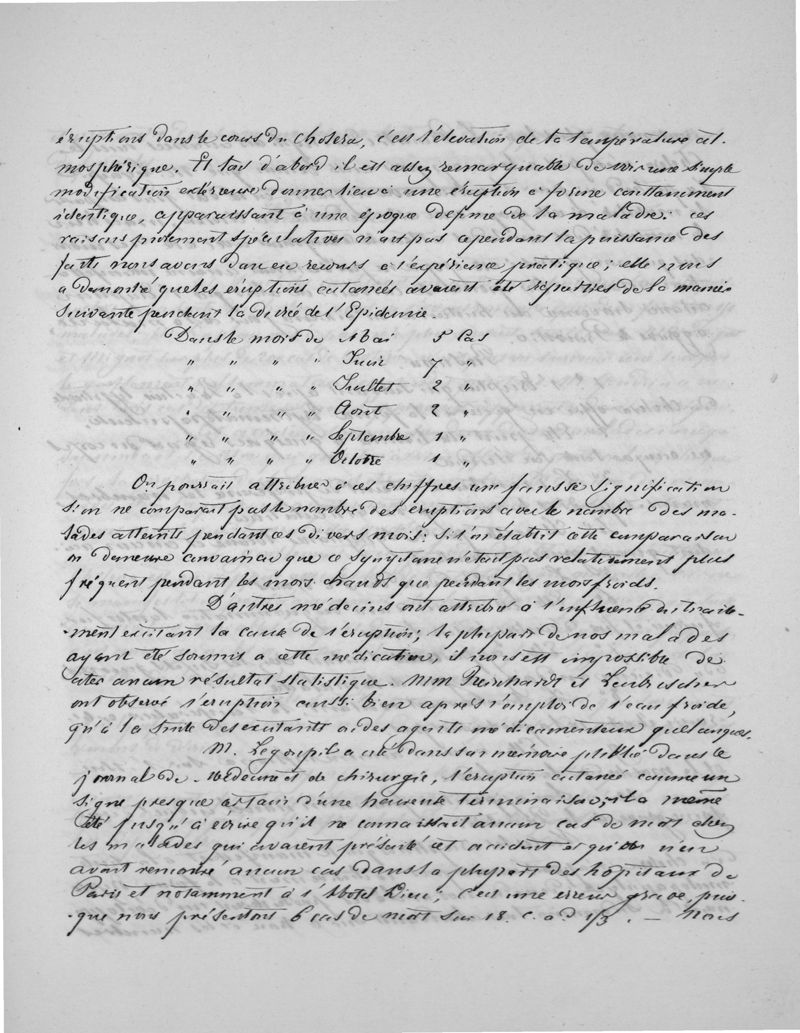 éruptions dans le cours du Cholera, c'est l'élevation de la température at-
mosphérique. Et tout d'abord il est assez remarquable de voir une simple
modification extérieure donner lieu à une eruption à forme constamment
identique, apparaissant à une époque définie de la maladie: ces
raisons purement spéculatives n'ont pas cependant la puissance des
faits nous avons donc eu recours à l'expérience pratique; elle nous
a demontré que les eruptions cutanées avaient été réparties de la manière
suivante pendant la durée de l'Epidemie.
Dans le mois de Mai 5 Cas
" " " " Juin 7 "
" " " " Juillet 2 "
" " " " Août 2 "
" " " " Septembre 1 "
" " " " Octobre 1 "
On pourrait attribuer à ces chiffres une fausse signification
si on ne comparait pas le nombre des eruptions avec le nombre des ma-
lades atteints pendant ces divers mois: si l'on établit cette comparaison
on demeure convaincu que ce symptome n'était pas relativement plus
fréquent pendant les mois chauds que pendant les mois froids.
D'autres médecins ont attribué à l'influence du traite-
-ment excitant la cause de l'éruption; la plupart de nos malades
ayant été soumis a cette médication, il nous est impossible de
citer aucun résultat statistique. MM Reinhardt et Leubuscher
ont observé l'eruption aussi bien après l'emploi de l'eau froide,
qu'à la suite des excitants ou des agents médicamenteux quelconques.
M. Legoupil a cité dans son mémoire publié dans le
journal de médecine et de chirurgie, l'eruption cutanée comme un
signe presque certain d'une heureuse terminaison; il a même
été jusqu'à écrire qu'il ne connaissait aucun cas de mort chez
les malades qui avaient présenté cet accident et qu'on n'en
avait rencontré aucun cas dans la plupart des hôpitaux de
Paris et notamment à l'Hotel Dieu; c'est une erreur grave puis-
-que nous présentons 6 cas de mort sur 18. c. a. d. 1/3. — Nous